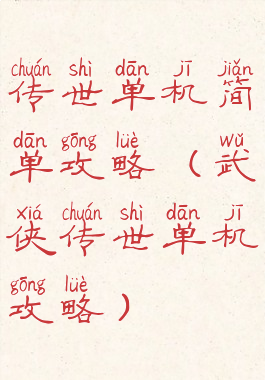 chuán shì dān jī jiǎn
传世单机简
dān gōng lüè wǔ
单攻略（武
xiá chuán shì dān jī
侠传世单机
gōng lüè
攻略）